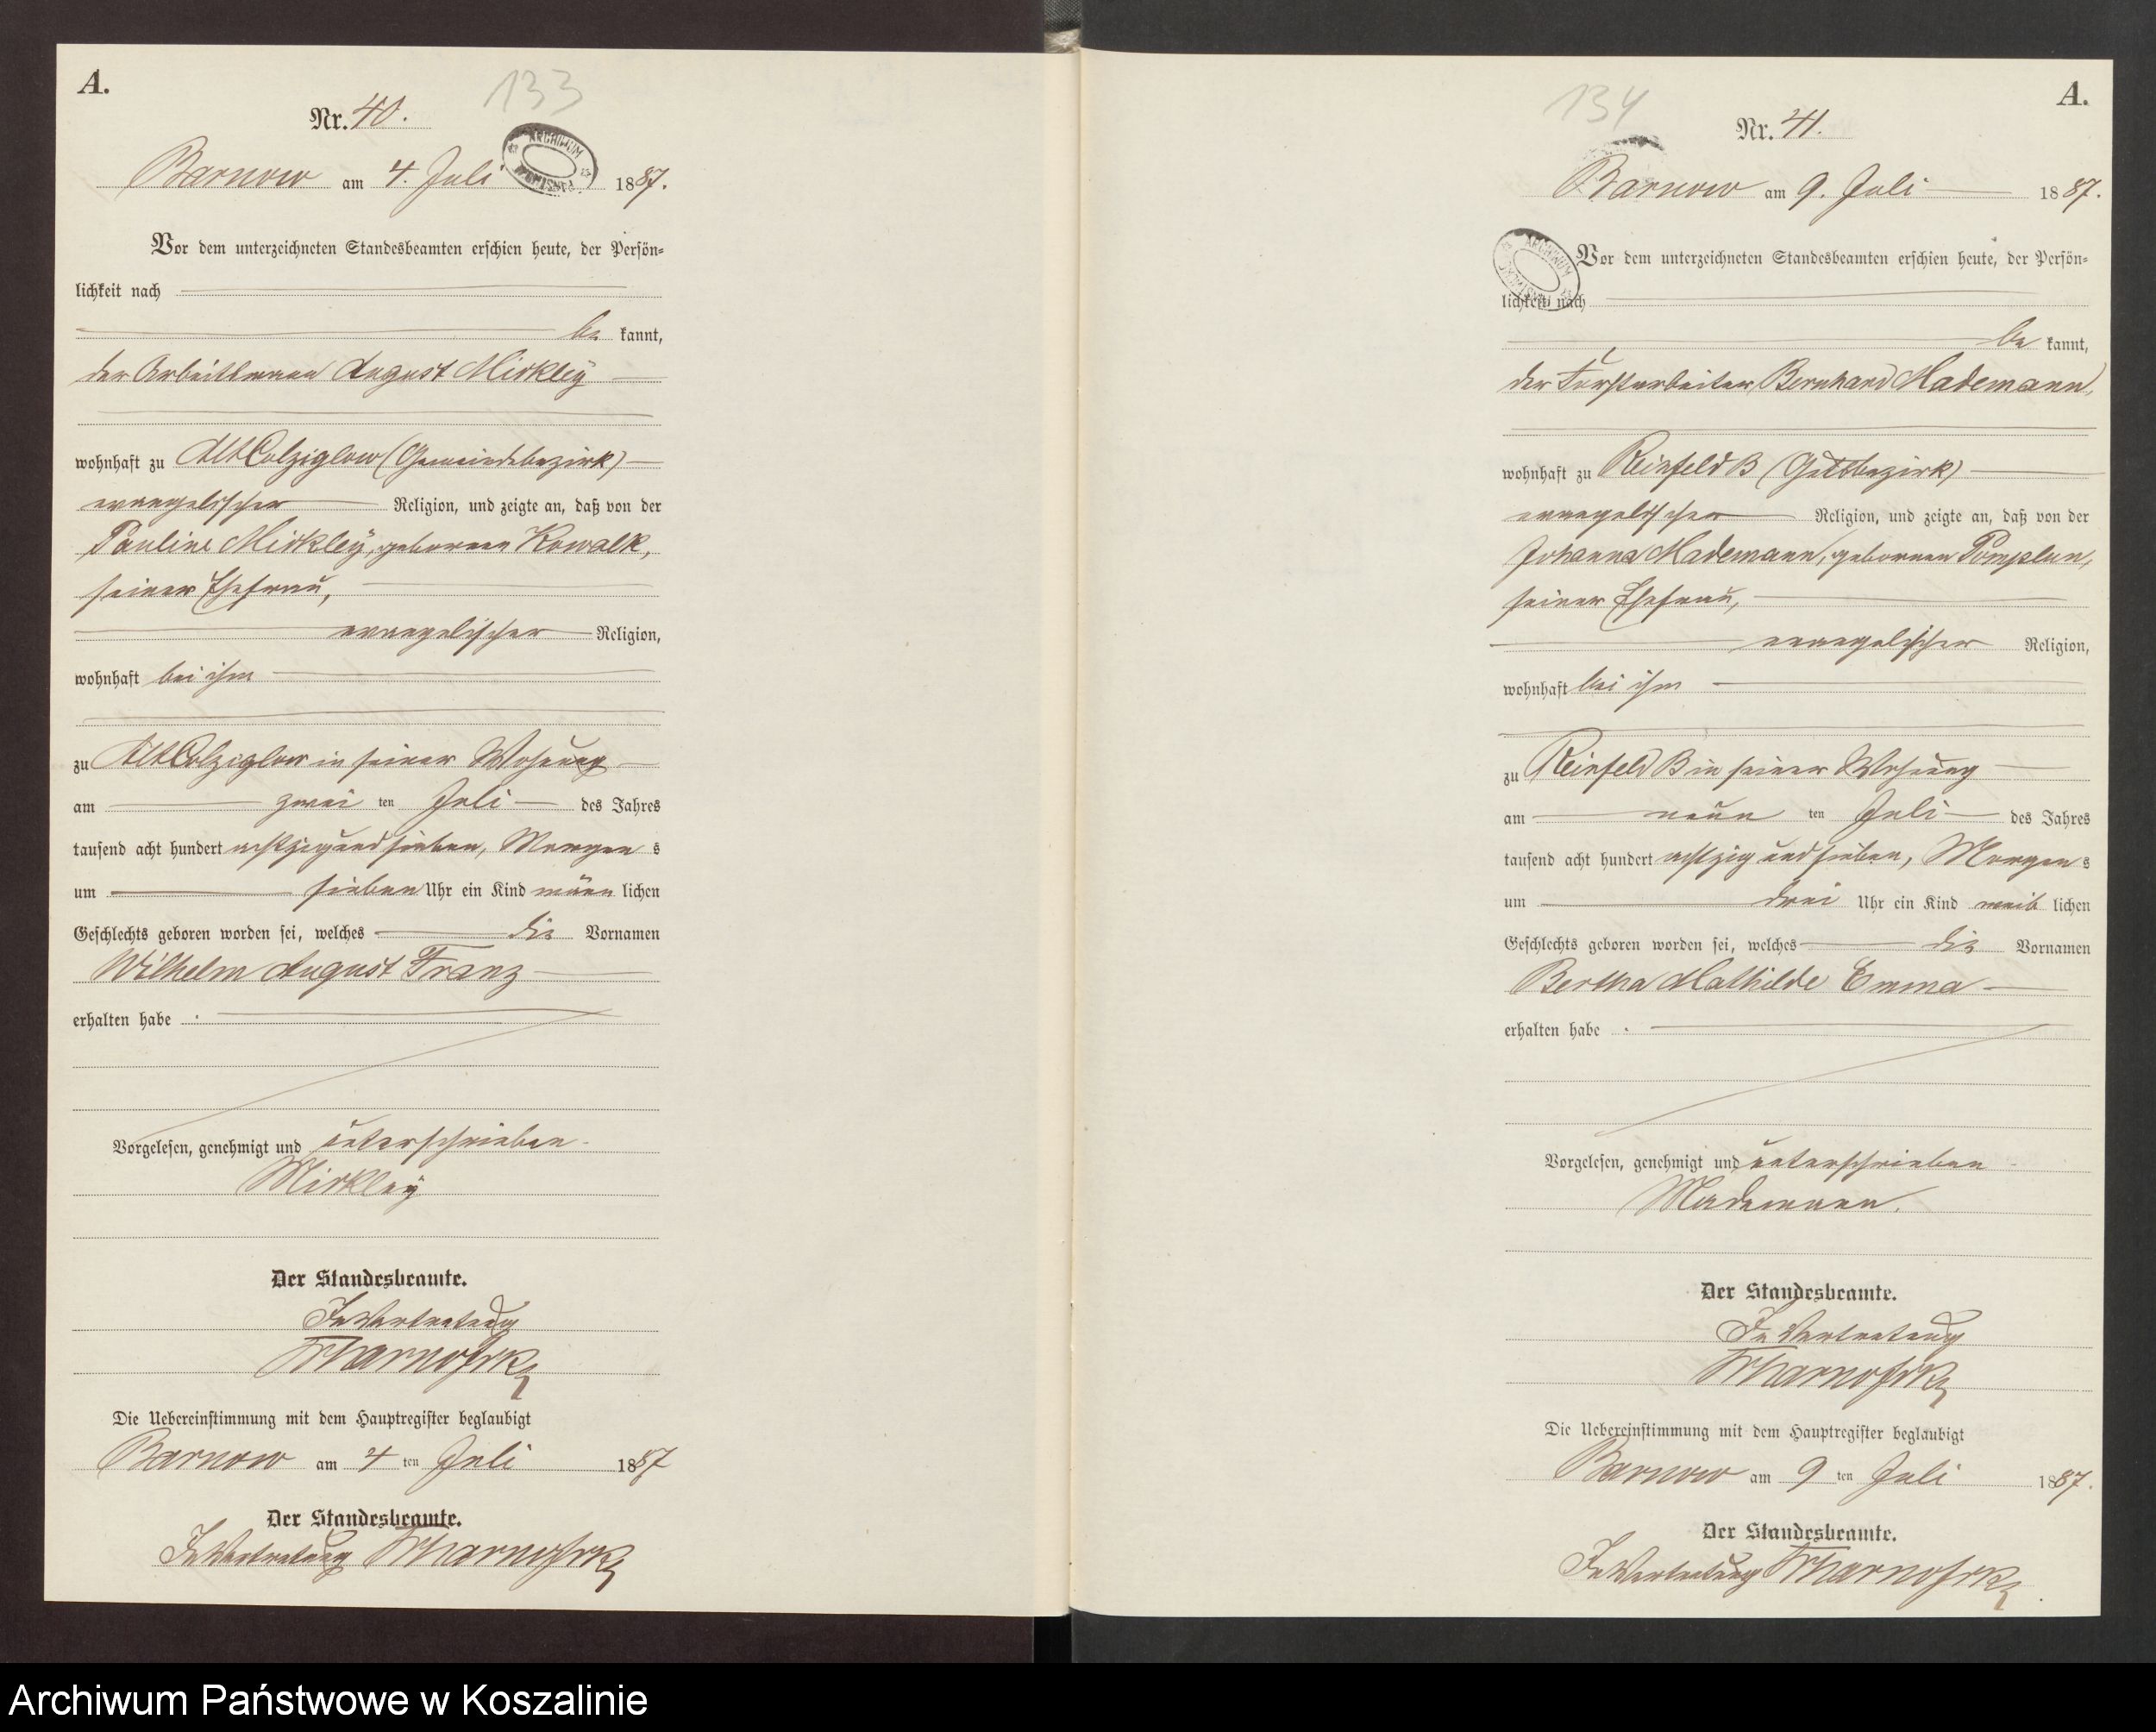 A.
133
Nr. 40.
Barnow am 4. Juli 1887.
ARCHIWUM
Vor dem unterzeichneten Standesbeamten erschien heute, der Persön-
lichkeit nach
be kannt,
der Arbeitsmann August Mirkley
wohnhaft zu Alt Colziglow (Gemeindebezirk)
evangelischer Religion, und zeigte an, daß von der
Pauline Mirkley, geborenen Kowalk,
seiner Ehefrau,
evangelischer Religion,
wohnhaft bei ihm
zu Alt Colziglow in seiner Wohnung
am zwei ten Juli des Jahres
tausend acht hundert achtzig und sieben, Morgen s
um sieben Uhr ein Kind männ lichen
Geschlechts geboren worden sei, welches die Vornamen
Wilhelm August Franz
erhalten habe.
Vorgelesen, genehmigt und unterschrieben
Mirkley
Der Standesbeamte.
In Vertretung
Die Uebereinstimmung mit dem Hauptregister beglaubigt
Barnow am 4 ten Juli 1887
Der Standesbeamte.
In Vertretung
A.
134
Nr. 41.
Barnow am 9. Juli 1887.
ARCHIWUM
Vor dem unterzeichneten Standesbeamten erschien heute, der Persön-
lichkeit nach
be kannt,
der Forstarbeiter Bernhard Mademann,
wohnhaft zu Reinfeld B (Gutsbezirk)
evangelischer Religion, und zeigte an, daß von der
Johanna Mademann, geborenen Pomplun,
seiner Ehefrau,
evangelischer Religion,
wohnhaft bei ihm
zu Reinfeld B in seiner Wohnung
am neun ten Juli des Jahres
tausend acht hundert achtzig und sieben, Morgen s
um drei Uhr ein Kind weib lichen
Geschlechts geboren worden sei, welches die Vornamen
Bertha Mathilde Emma
erhalten habe.
Vorgelesen, genehmigt und unterschrieben
Mademann.
Der Standesbeamte.
In Vertretung
Die Uebereinstimmung mit dem Hauptregister beglaubigt
Barnow am 9 ten Juli 1887.
Der Standesbeamte.
In Vertretung
Archiwum Państwowe w Koszalinie